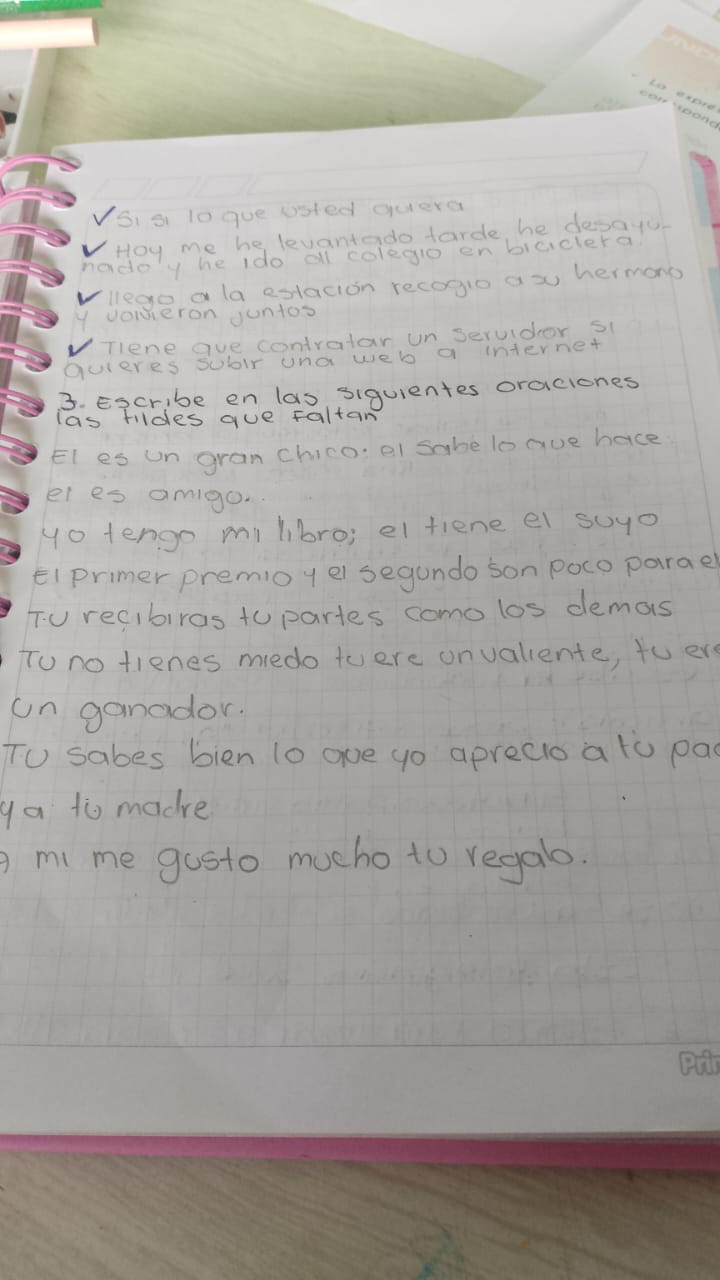 La expre
correspond
✓ Si si lo que usted quiera
✓ Hoy me he levantado tarde, he desayu-
nado y he ido all colegio en bicicleta.
✓ llego a la estación recogio a su hermano
y volvieron juntos
✓ Tiene que contratar un servidor si
quieres subir una web a internet
3. Escribe en las siguientes oraciones
las tildes que faltan
El es un gran chico: el sabe lo que hace
el es amigo..
yo tengo mi libro; el tiene el suyo
El primer premio y el segundo son poco para el
Tu recibiras tu partes como los demas
Tu no tienes miedo tu ere un valiente, tu ere
un ganador.
Tu sabes bien lo que yo aprecio a tu pad
y a tu madre
a mi me gusto mucho tu regalo.
Prin